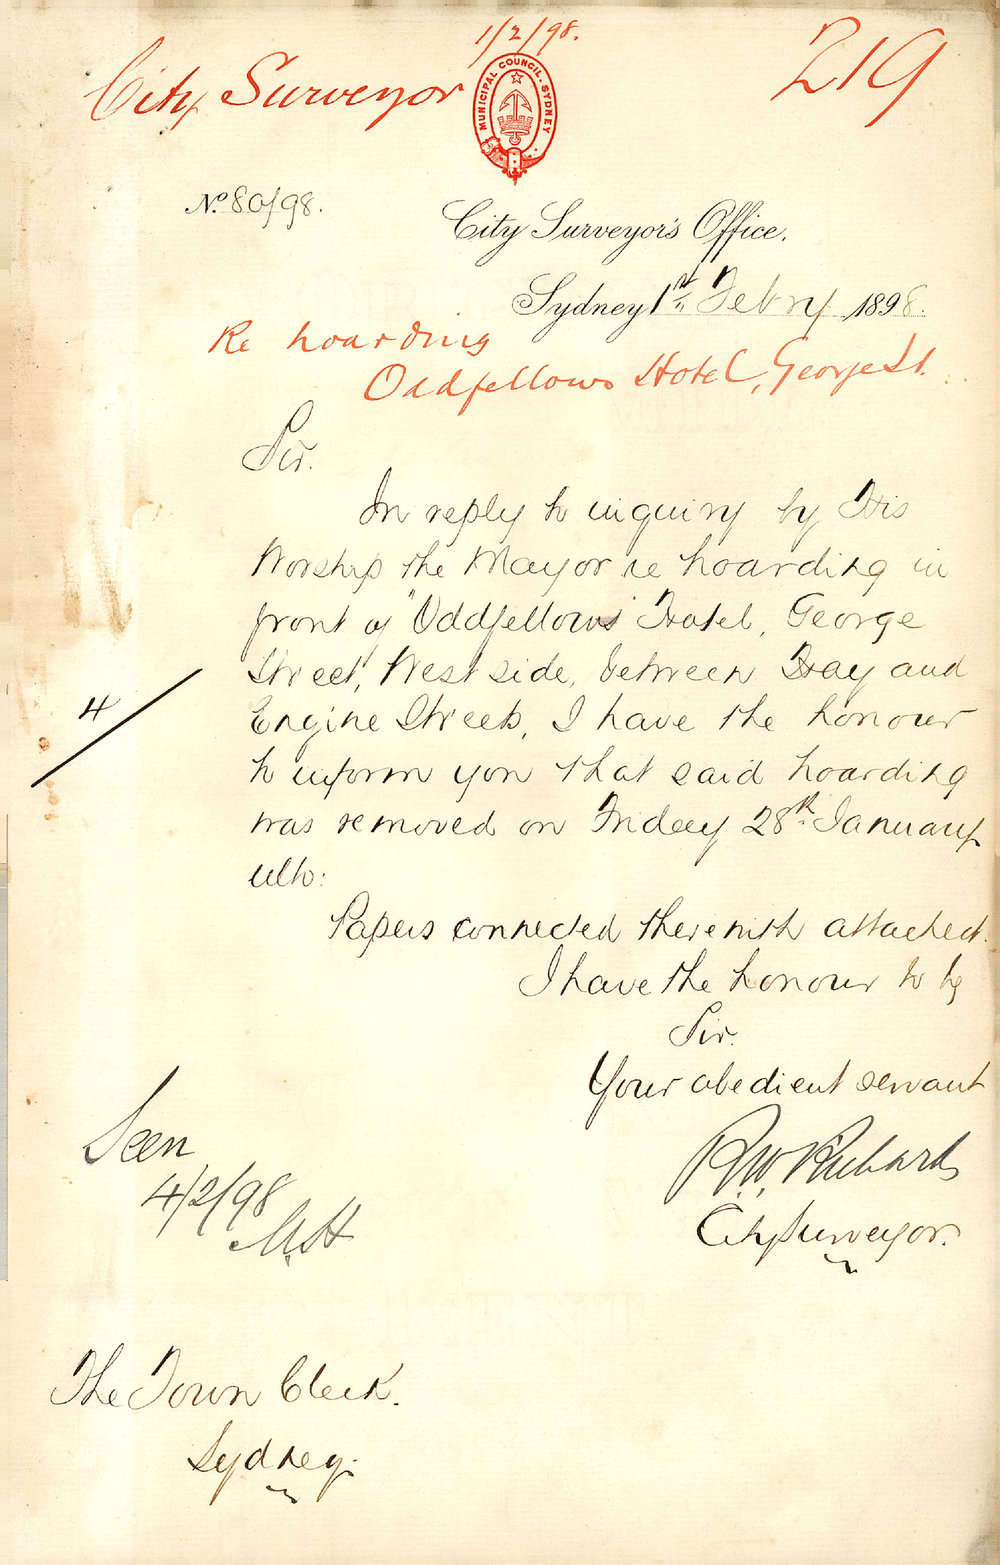 1/2/98.
City Surveyor
219
MUNICIPAL COUNCIL. SYDNEY
No. 80/98.
City Surveyor's Office.
Sydney 1st Febry 1898.
Re hoarding
Oddfellows Hotel, George St.
Sir.
In reply to inquiry by His
Worship the Mayor re hoarding in
front of "Oddfellows" Hotel, George
Street, West side, between Hay and
Engine Streets, I have the honour
4
to inform you that said hoarding
was removed on Friday 28th. January
ulto:
Papers connected therewith attached.
I have the honour to be
Sir.
Your obedient servant
R.W. Richards
City Surveyor.
Seen
4/2/98
The Town Clerk.
Sydney.